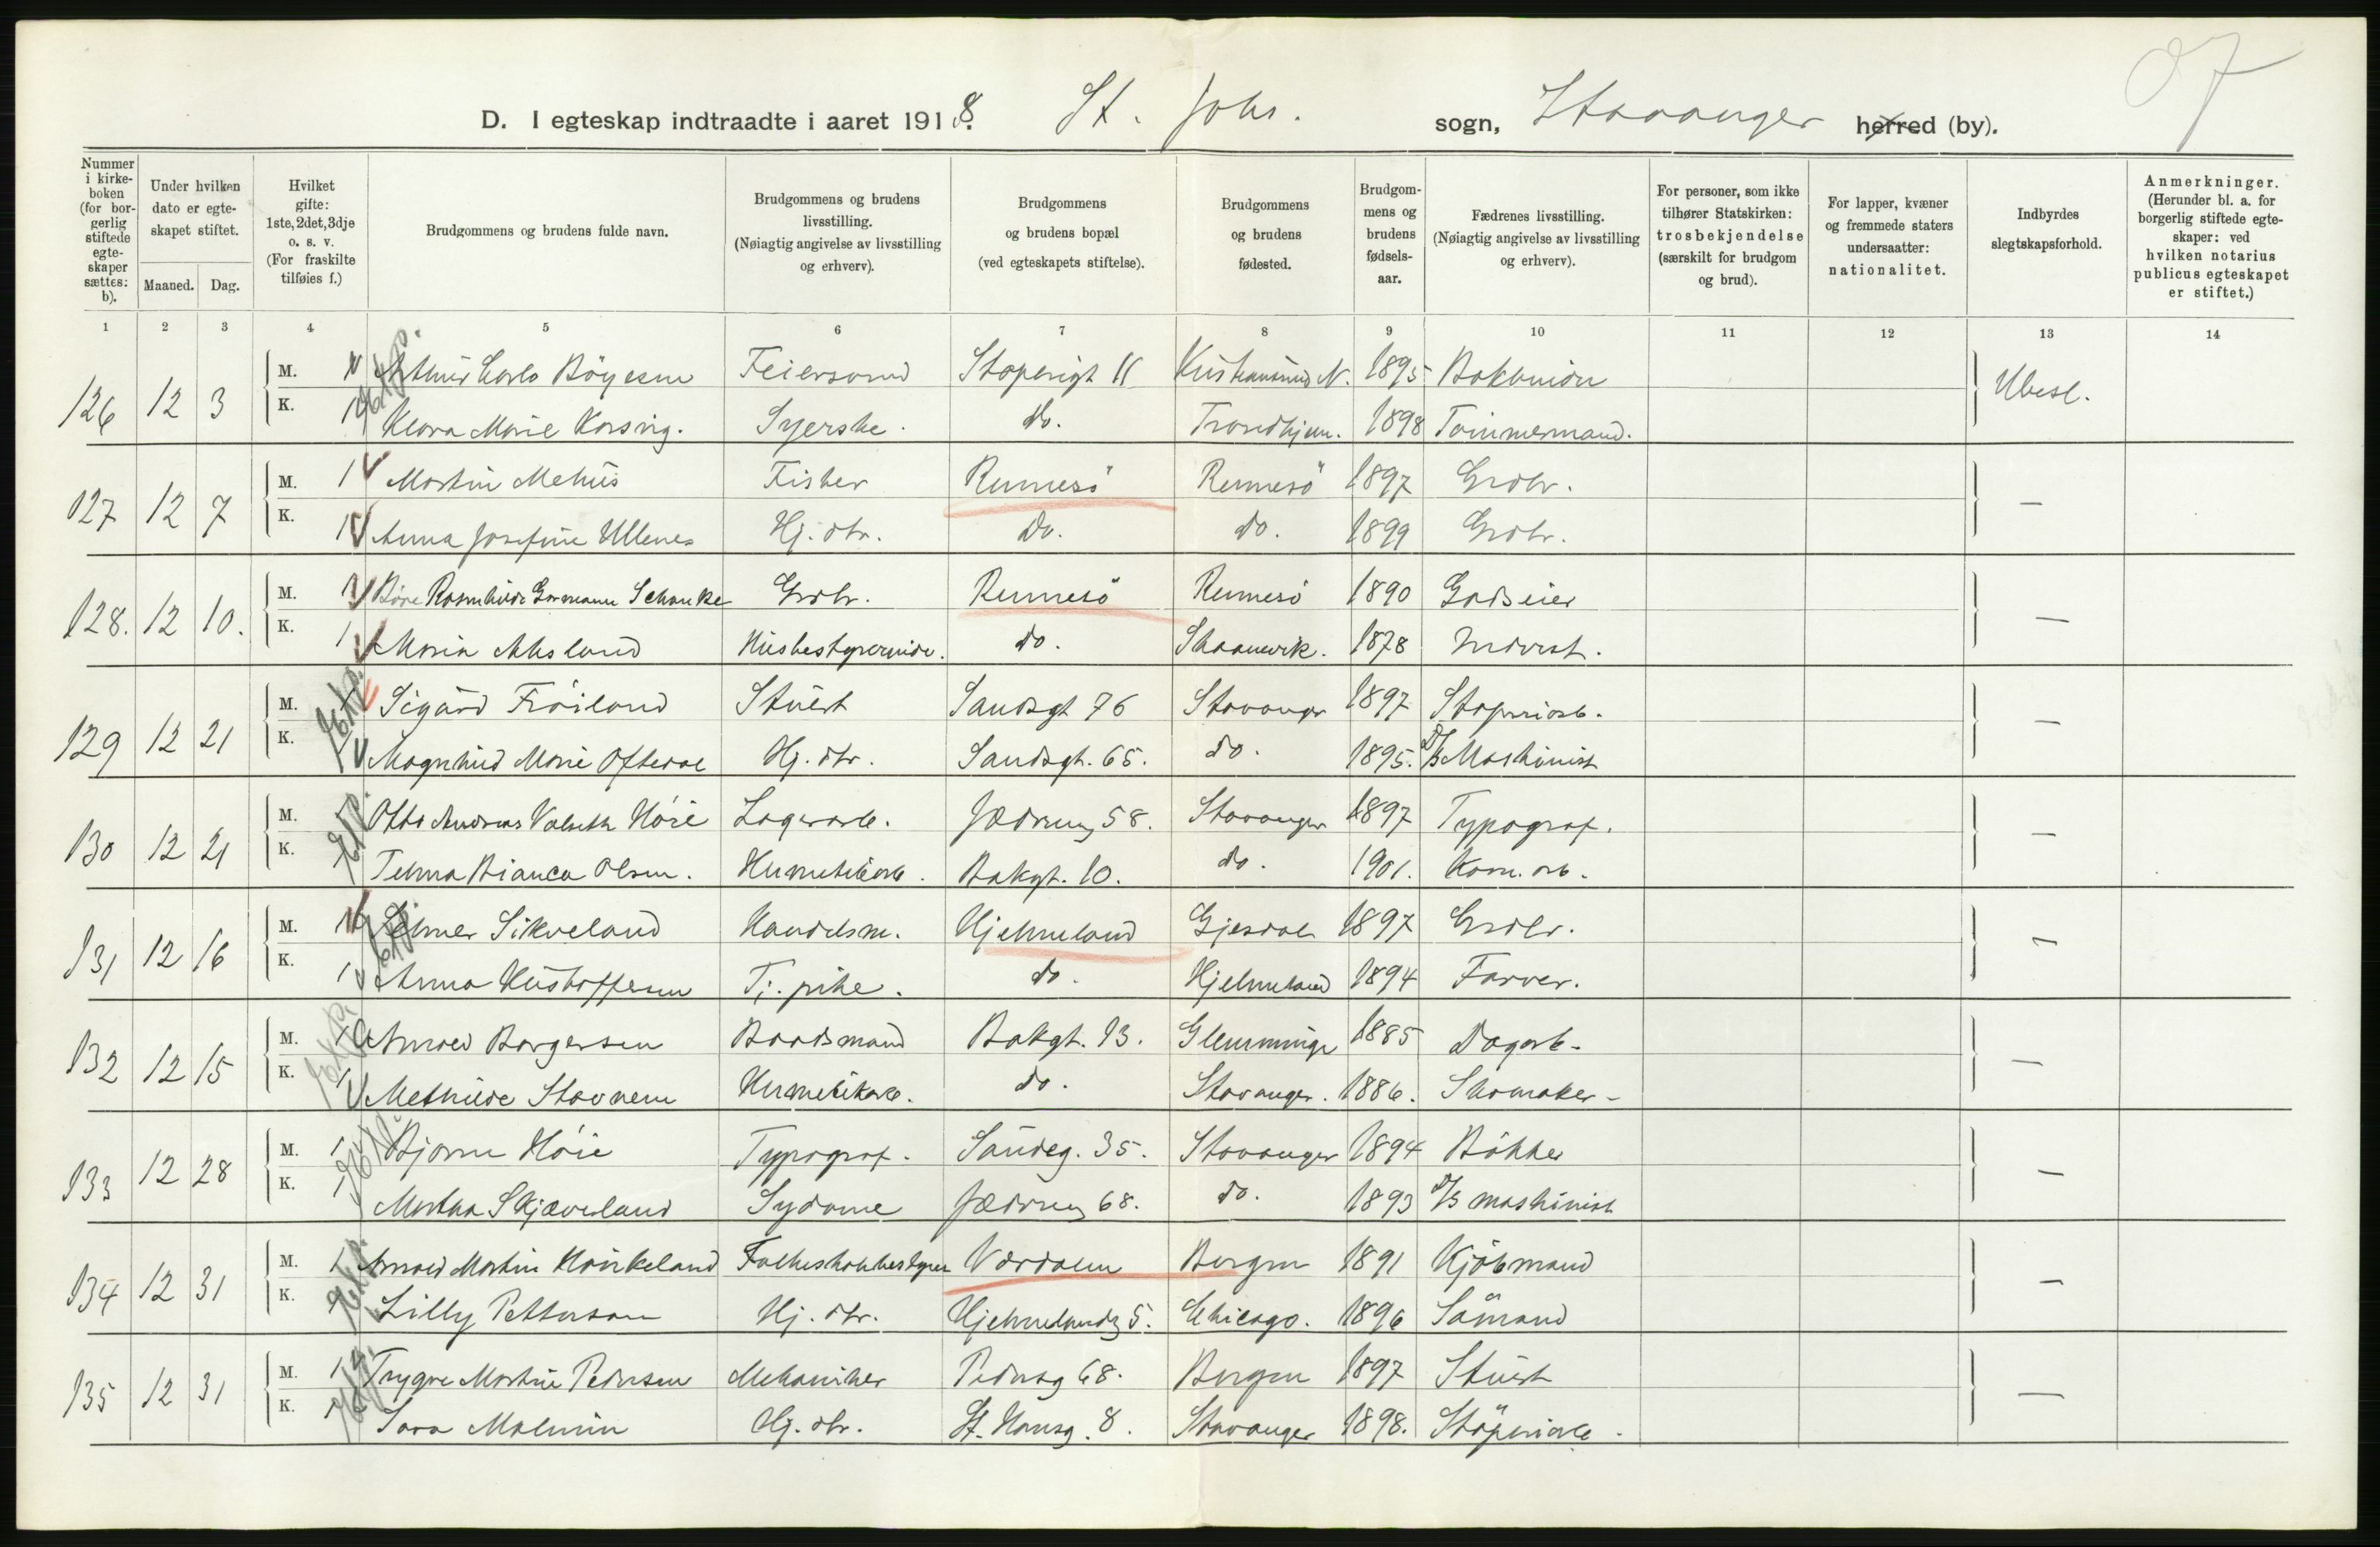 D. I egteskap indtraadte i aaret 1918. St. Johs. sogn, Stavanger herred (by).
Nummer i kirkeboken (for borgerlig stiftede egteskaper sættes: b).
Under hvilken dato er egteskapet stiftet.
Maaned. Dag.
Hvilket gifte: 1ste, 2det, 3dje o. s. v. (For fraskilte tilføies f.)
Brudgommens og brudens fulde navn.
Brudgommens og brudens livsstilling. (Nøiagtig angivelse av livsstilling og erhverv).
Brudgommens og brudens bopæl (ved egteskapets stiftelse).
Brudgommens og brudens fødested.
Brudgommens og brudens fødselsaar.
Fædrenes livsstilling. (Nøiagtig angivelse av livsstilling og erhverv).
For personer, som ikke tilhører Statskirken: trosbekjendelse (særskilt for brudgom og brud).
For lapper, kvæner og fremmede staters undersaatter: nationalitet.
Indbyrdes slegtskapsforhold.
Anmerkninger. (Herunder bl. a. for borgerlig stiftede egteskaper: ved hvilken notarius publicus egteskapet er stiftet.)
1 2 3 4 5 6 7 8 9 10 11 12 13 14
126 12 3 M. 1 Böyesen Feiersvend Støperigt 11 Kristiansund N. 1895 Ubesl.
K. 1 Klara Marie Korsvig. Syerske. do. Trondhjem. 1898 Tømmermand.
127 12 7 M. 1 Martin Mehus Fisker Rennesö Rennesö 1897 Grdbr. —
K. 1 Anna Josefine Ullenes Hj. dtr. do. do. 1899 Grdbr.
128. 12 10. M. 1 Schanke Grdbr. Rennesö Rennesö 1890 Godseier —
K. 1 Maria Husbestyrerinde. do. Skaanevik. 1878
129 12 21 M. 1 Sigurd Fröiland Stuert Sandsgt 76 Stavanger 1897 Støperiarb. —
K. 1 Magnhild Marie Oftedal Hj. dtr. Sandsgt. 65. do. 1895. D/S Maskinist
130 12 21 M. 1 Otto Andreas Valseth Höie Lagerarb. Jædervg 58. Stavanger 1897 Typograf. —
K. 1 Telma Bianca Olsen. Hermetikarb. Bakgt. 10. do. 1901. Kom. arb.
131 12 16 M. 1 Sikveland Handelsm. Hjelmeland Gjesdal 1897 Grdbr. —
K. 1 Anna Kristoffersen Tj. pike. do. Hjelmeland 1894 Farver.
132 12 15 M. 1 Arnold Borgersen Baadsmand Bakgt. 13. Glemminge 1885 Dagarb. —
K. 1 Methilde Stavnem Hermetikarb. do. Stavanger. 1886. Skomaker
133 12 28 M. 1 Bjarne Höie Typograf. Sandeg. 35. Stavanger 1894 Bökker —
K. 1 Martha Skjæveland Sydame Jædervg 68. do. 1893 D/S maskinist
134 12 31 M. 1 Arnold Martin Haukeland Værdalen Bergen 1891 Kjöbmand —
K. 1 Lilly Pettersen Hj. dtr. Hjelmelandsg 5. Chicago. 1896 Sömand
135 12 31 M. 1 Trygve Martin Pedersen Mekaniker Pedersg 68. Bergen 1897 Stuert —
K. 1 Sara Malmin Hj. dtr. St. Hansg. 8. Stavanger 1898. Støperiarb.